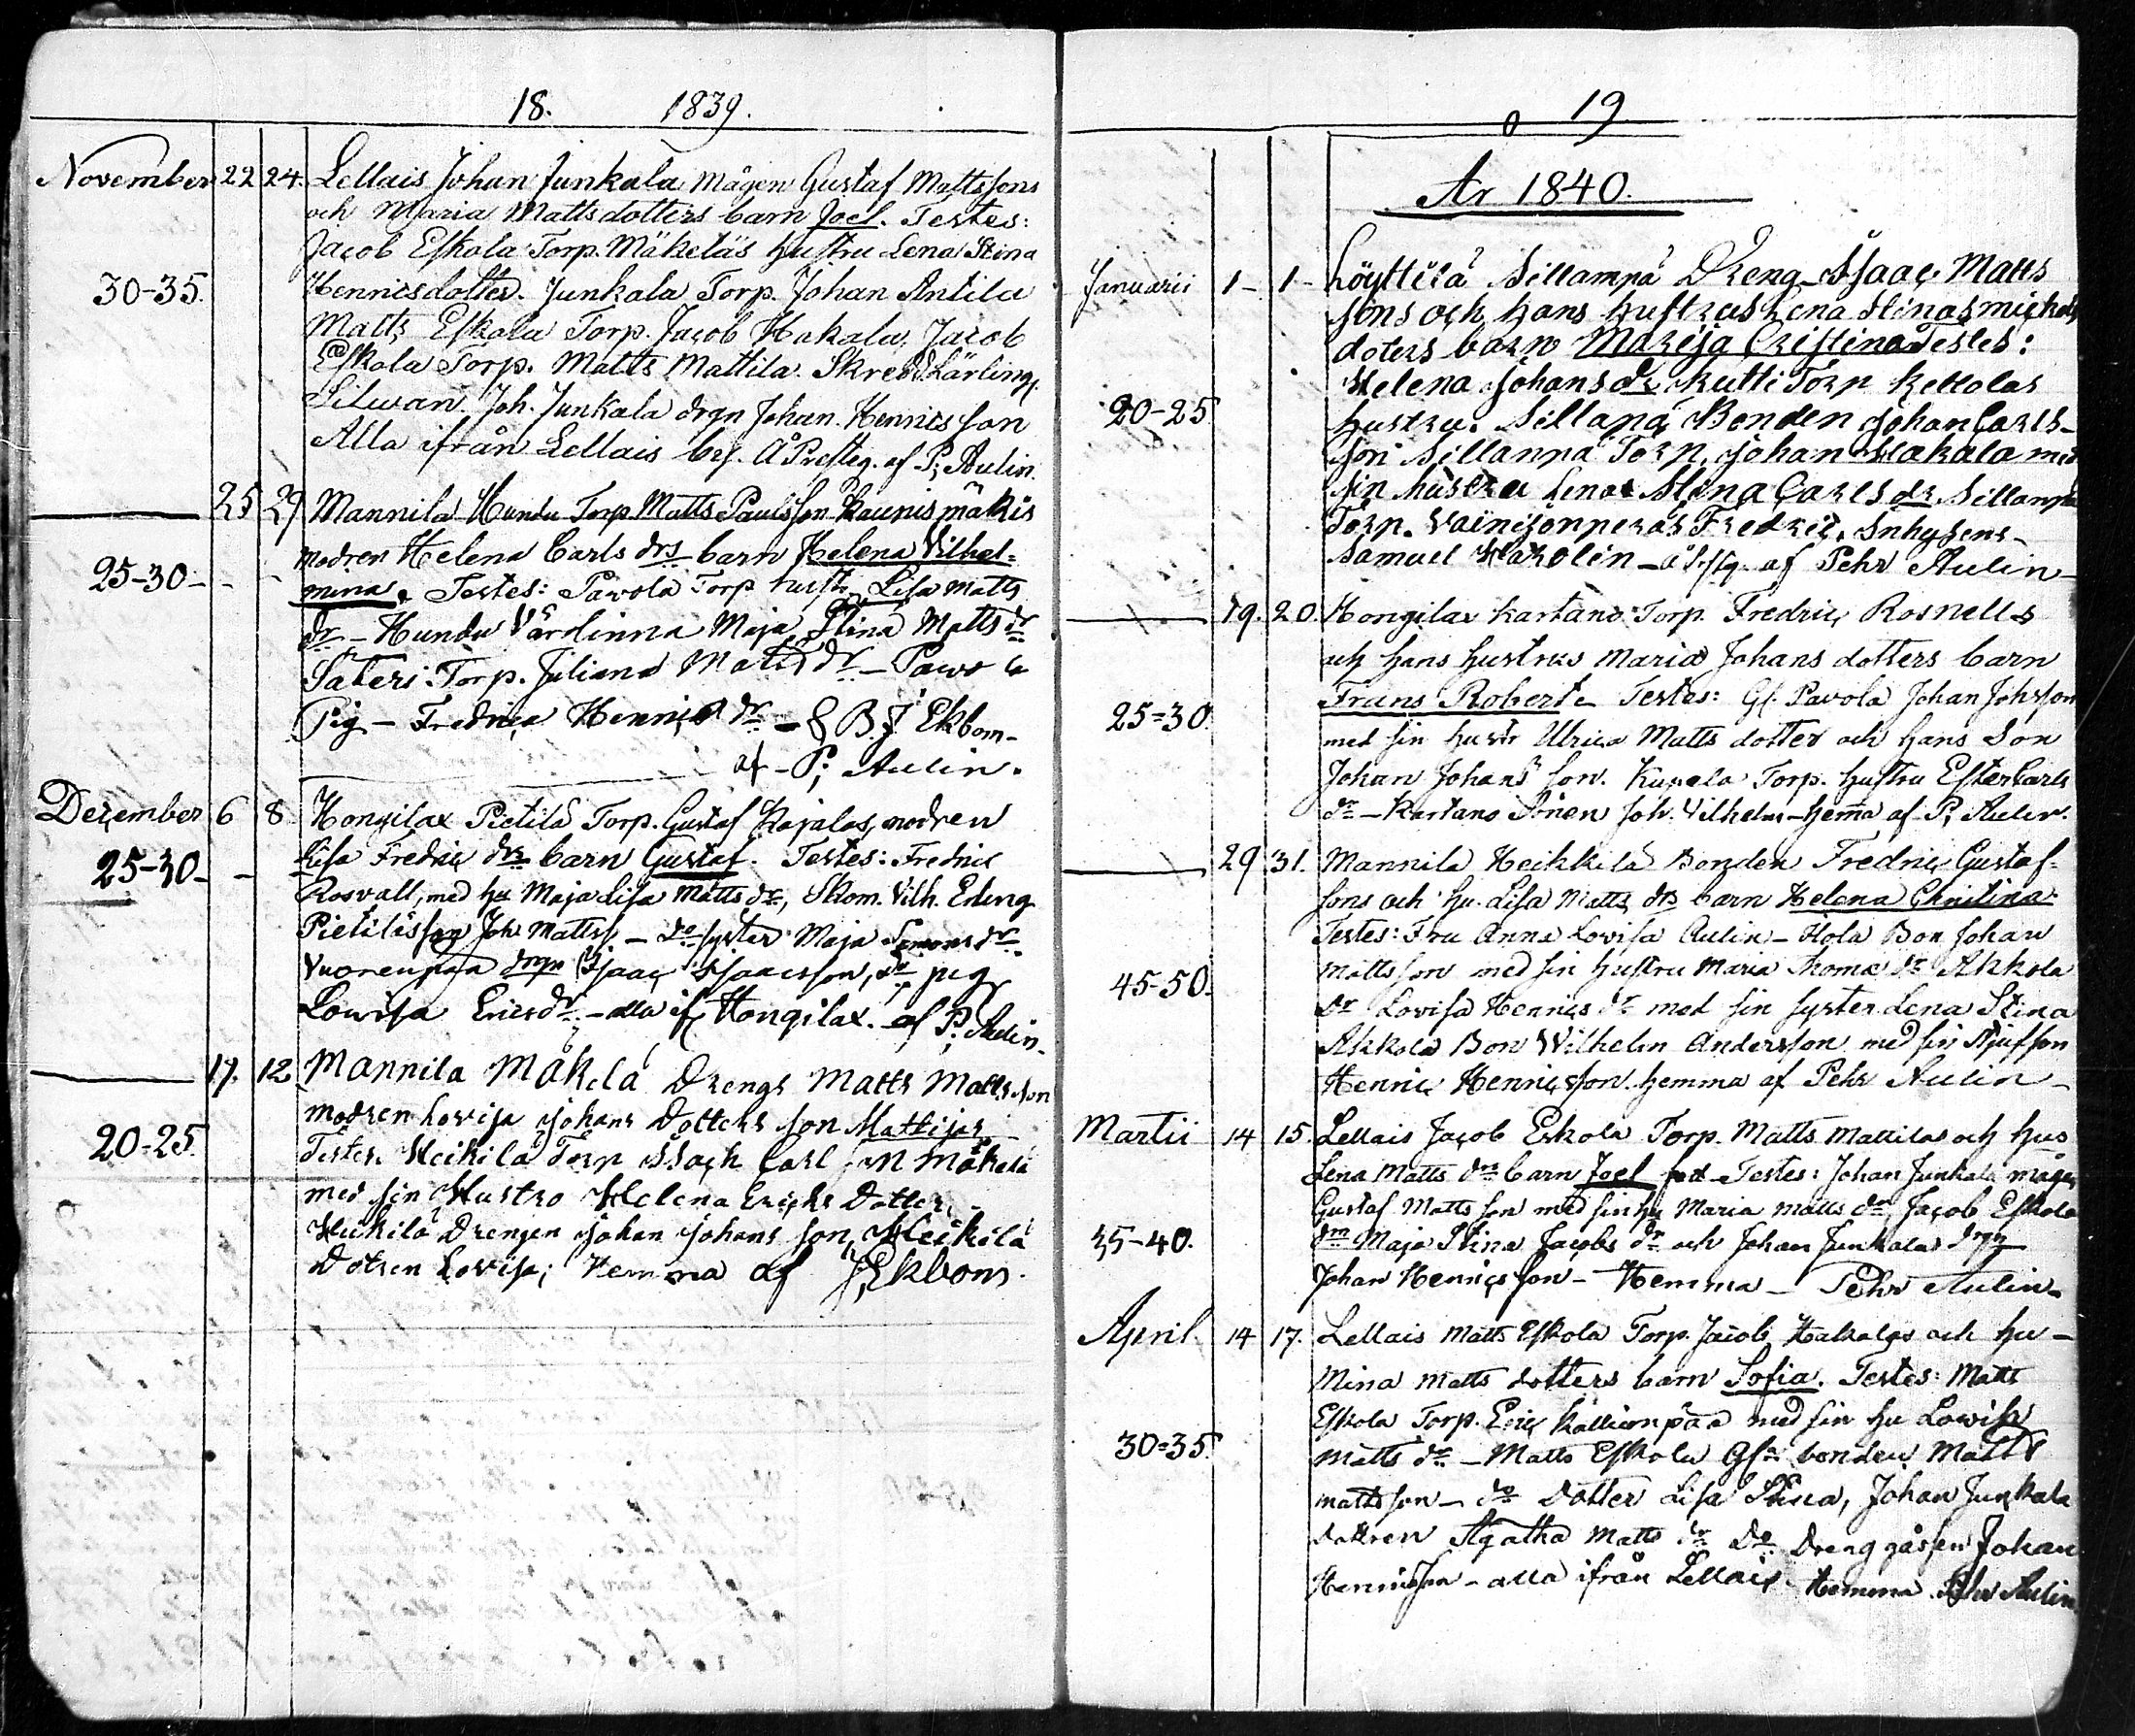 18. 1839.
November 22 24. Lellais Johan Junkala mågen Gustaf Mattssons
och Maria Mattsdotters barn Joel. Testes:
Jacob Eskola Torp. Mäkeläs hustru Lena Stina
30-35. Henricsdotter. Junkala Torp. Johan Antila
Matts Eskola Torp. Jacob Hakala, Jacob
Eskola Torp. Matts Mattila. Skredd. Lärling.
Silwan. Joh. Junkala drgn Johan Henricsson
Alla ifrån Lellais by. Å Presteg. af P; Aulin.
25 29 Mannila Hundu Torp. Matts Paulsson Kaunismäkis
modren Helena Carls drs barn Helena Vilhel=
25-30 - - mina. Testes: Pavola Torp hustr Lisa Matts
dr - Hundu Värdinna Maja Stina Matts dr
Säteri Torp. Juliana Matts dr - Pawo
Pig - Fredrica Henrics dr - & B. J. Ekbom -
af - P; Aulin.
December 6 8 Hongilax Pietilä Torp. Gustaf Kajalas, modren
25-30 - - Lisa Fredric drs barn Gustaf. Testes: Fredric
Rosvall, med hu Maja Lisa Matts dr, Skom. Vilh. Ering
Pietilässon Joh Mattss. - do syster Maja Simons dr.
Vuorenpää drgn Isaac Isaacsson, do pig
Lowisa Erics dr - alla if. Hongilax. af P; Aulin.
17. 12 Mannila Mäkelä Drengs Matts Mattsson
modren Lovisa Johans Dotters son Mattijas
20-25. Testes. Heikilä Torp Isach Carl son Mäkelä
med sin Hustro Helena Erichs Dotter,
Heikilä Drengen Johan Johans son, Heikilä
Dotren Lovisa; Hemma af J; Ekbom.
19
Ar 1840.
Januarii 1 - 1 - Löyttilä Sillampä Dreng Isaac Matts
sons och hans hustrus Lena Stinas Mickels
doters barn Marija Cristina Testes:
Helena Johans dr Kutti Torp Kellolas
20-25 hustru. Sillanpä Bonden Johan Carls-
son Sillanpä Torp. Johan Hakala med
sin hustru Lena Stina Carls dr Sillampä
Torp. Vainijonperäs Fredric. Inhysens -
Samuel Harolin - å Pstg. af Pehr Aulin -
19. 20. Hongilax Kartano Torp. Fredric Rosnells
och hans hustrus Maria Johans dotters barn
Frans Robert. Testes: Gl. Pavola Johan Johsson
25=30. med sin hustr Ulrica Matts dotter och hans Son
Johan Johans son. Kupela Torp. hustru Ester Carls
dr - Kartano Sonen Joh. Vilhelm - hem̄a af P; Aulin.
29 31. Mannila Heikkilä Bonden Fredric Gustaf-
sons och hu. Lisa Matts drs barn Helena Christina
Testes: Fru Anna Lovisa Aulin - Hola Bon Johan
Mattsson med sin hustru Maria Thomæ dr Akkola
45-50. dr Lovisa Henrics dr med sin syster Lena Stina
Akkola Bon Wilhelm Andersson med sin Stjufson
Henric Henricsson. hemma af Pehr Aulin -
Martii 14 15. Lellais Jacob Eskola Torp. Matts Mattilas och hus
Lena Matts drs barn Joel - Testes: Johan Junkala mågen
Gustaf Matts son med sin hu Maria Matts dr, Jacob Eskola
35-40. drn Maja Stina Jacobs dr och Johan Junkalas drgn
Johan Henricsson - Hemma - Pehr Aulin -
April. 14 17. Lellais Matts Eskola Torp. Jacob Hakalas och hu -
Mina Matts dotters barn Sofia. Testes: Matts
Eskola Torp. Eric Kallionpää med sin hu Lowisa
30=35. Matts dr - Matts Eskola bonden Matts
Mattsson - do Dotter Lisa Stina, Johan Junkala
dottren Agatha Matts dr do Dreng gåssen Johan
Henricsson - alla ifrån Lellais. Hemma. Pehr Aulin